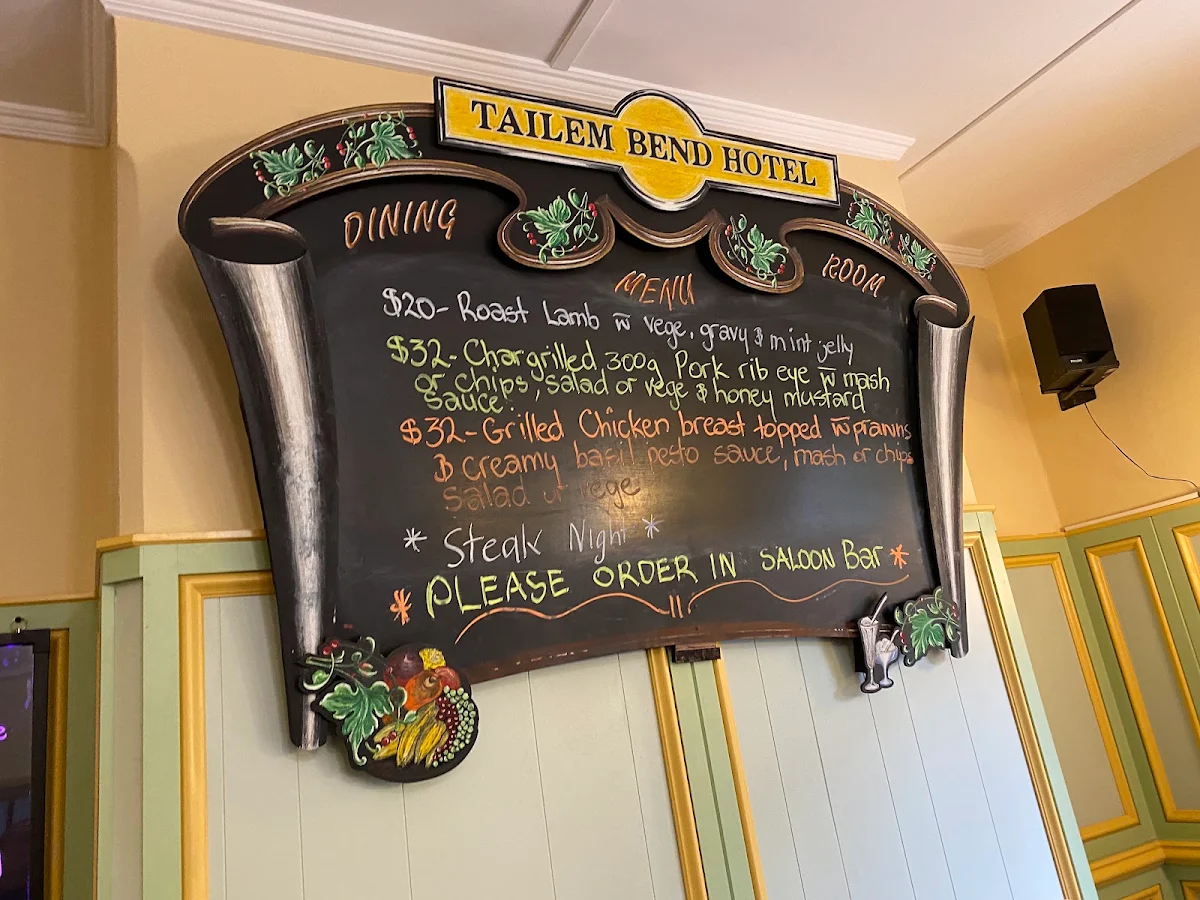 TAILEM BEND HOTEL
DINING
ROOM
MENU
$20- Roast Lamb w̄ vege, gravy & mint jelly
$32- Chargrilled 300g Pork rib eye w̄ mash
or chips, salad or vege & honey mustard
sauce.
$32- Grilled Chicken breast topped w̄ prawns
& creamy basil pesto sauce, mash or chips
salad or vege
* Steak Night *
* PLEASE ORDER IN SALOON Bar *